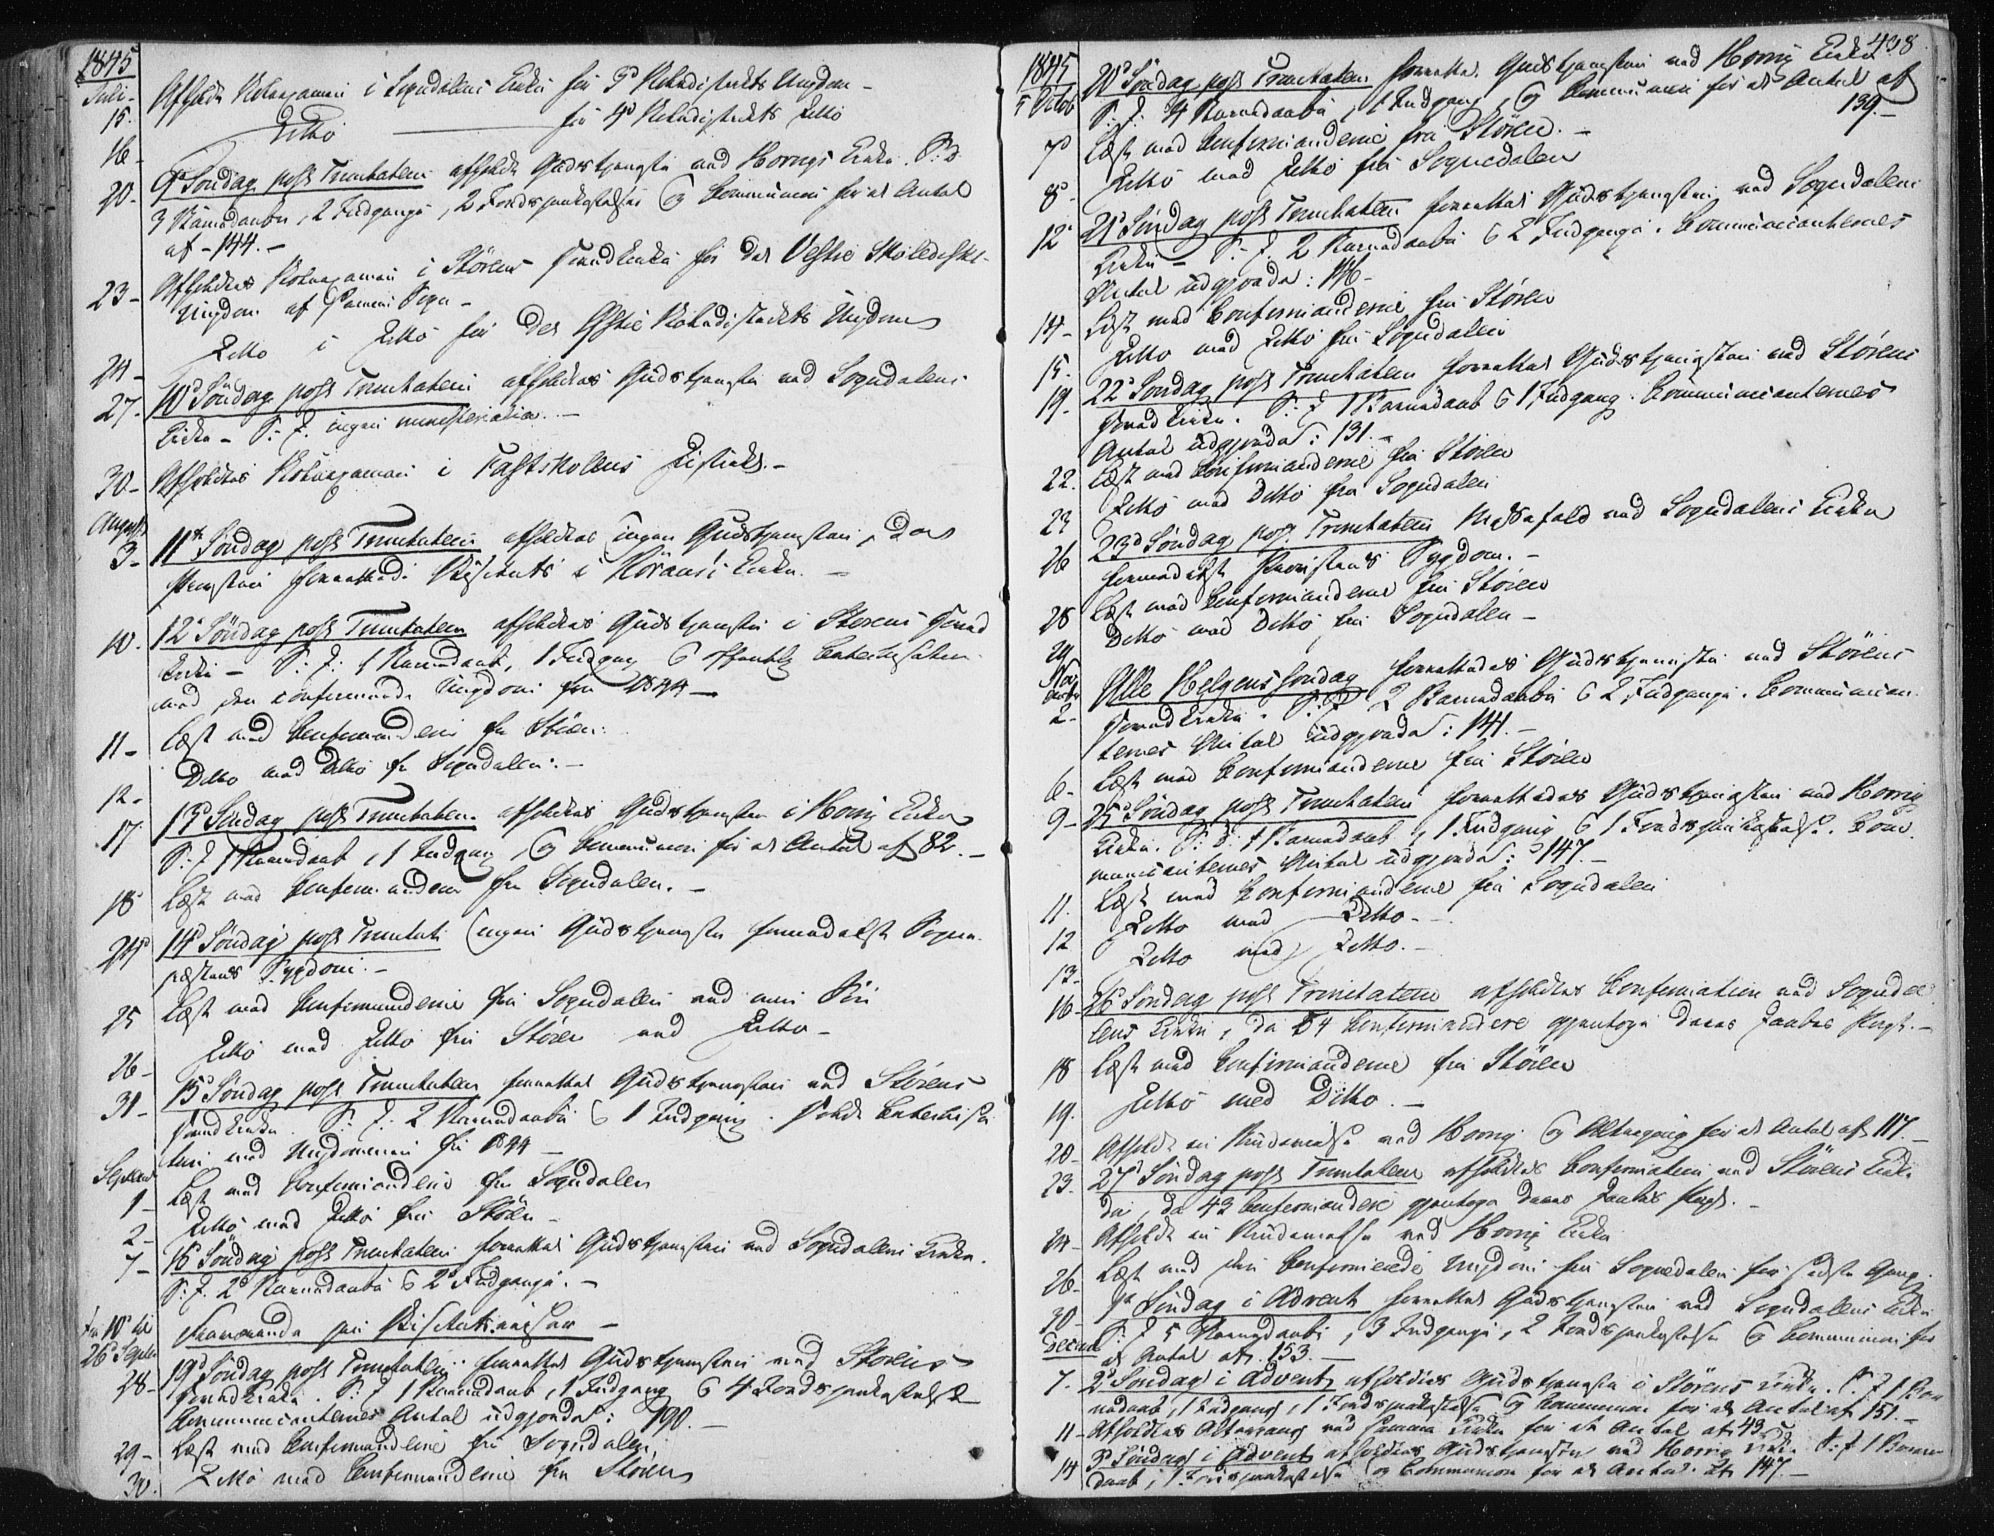 1845
Juli
15. Afholdt Skoleexamen i Sognedalens Kirke for 3d Skoledistrikts Ungdom –
16 – Ditto ——— for 4d Skoledistrikts Ditto
20 – 9d Søndag post Trinitatem afholdt Gudstjeneste ved Horrigs Kirke. S: D:
3 Barnedaaber, 2 Indgange, 2 Jordspaakastelser og Communion for et Antal
af – 144. –
23 – Afholdtes Skoleexamen i Størens Hovedkirke for det Vestre Skoledistr.
Ungdom af samme Sogn –
24 – Ditto i Ditto for det Østre Skoledistrikts Ungdom
27. 10d Søndag post Trinitatem afholdtes Gudstjeneste ved Sognedalens
Kirke – S: D. ingen ministerialia. –
30 – Afholdtes Skoleexamen i Fastskolens Distrikt. –
August
3 – 11te Søndag post Trinitatem afholdtes ingen Gudstjeneste, da
Præsten forrettede i Kirke. –
10. 12d Søndag post Trinitatem afholdtes Gudstjeneste i Størens Hoved
Kirke – S: D: 1 Barnedaab, 1 Indgang & offentlig Catechisation
med den confirmerede Ungdom fra 1844 –
11 – Læst med Confirmanderne fra Støren.
12 – Ditto med Ditto fr Sognedalen. –
17 13d Søndag post Trinitatem afholdtes Gudstjeneste i Horrig Kirke
S: D 1 Barnedaab, 1 Indgang, og Communion for et Antal af 82. –
18 Læst med Confirmanderne fra Sognedalen. –
24d 14d Søndag post Trinitati ingen Gudstjeneste formedelst Sogne
præstens Sygdom. –
25 Læst med Confirmanderne fra Sognedalen
26 – Ditto med Ditto fra Støren ved Ditto –
31 – 15d Søndag post Trinitatem forrettet Gudstjenesten ved Størens
Hovedkirke. S: D: 2 Barnedaabe & 1 Indgang. Holdt Catechisa
tion med Ungdommen fra 1844 –
September
1 – Læst med Confirmanderne fra Sognedalen
2 – Ditto med Ditto fra Støren –
7 – 16d Søndag post Trinitatem forrettet Gudstjenesten ved Sognedalens Kirke.
S: D. 2d Barnedaabe & 2d Indgange. –
Fra 10d til
26d Septbr Fraværende paa Visitatsreiser –
28 – 19d Søndag post Trinitatem forrettet Gudstjenesten ved Størens
Hovedkirke. S: D 1 Barnedaab, 1 Indgang & 4 Jordspaakastelser
Communicanternes Antal udgjorde: 190. –
29 – Læst med Confirmanderne fra Sognedalen,
30. Ditto med Confirmanderne fra Støren
438
1845
5 Octob 20d Søndag post Trinitatem forrettet Gudstjenesten ved Horrig Kirke
S: D: 4 Barnedaabe, 1 Indgang, og Communion for et Antal af
139. –
7d Læst med Confirmanderne fra Støren. –
8d – Ditto med Ditto fra Sognedalen
12d 21d Søndag post Trinitatem forrettet Gudstjenesten ved Sognedalens
Kirke – S: D. 2 Barnedaabe & 2 Indgange. Communicanternes
Antal udgjorde: 146 –
14 – Læst med Confirmanderne fra Støren
15. Ditto med Ditto fra Sognedalen
19. 22d Søndag post Trinitatem forrettet Gudstjenesten ved Størens
Hovedkirke. S: D 1 Barnedaab & 1 Indgang. Communicanternes
Antal udgjorde: 131. –
22. Læst med Confirmanderne fra Støren
23 Ditto med Ditto fra Sognedalen
26 23d Søndag post Trinitatem Messefald ved Sognedalens Kirke
formedelst Præstens Sygdom. –
28 Læst med Confirmanderne fra Støren
29 Ditto med Ditto fra Sognedalen –
November
2 – Alle Helgens Søndag forrettedes Gudstjeneste ved Størens
Hovedkirke. S: D 2 Barnedaabe & 2 Indgange. Communican
ternes Antal udgjorde: 141. –
6 – Læst med Confirmanderne fra Støren
9 – 25d Søndag post Trinitatem forrettedes Gudstjenesten ved Horrig
Kirke. S: D: 1 Barnedaab, 1 Indgang & 1 Jordspaakastelse. Com
municanternes Antal udgjorde: 147. –
11. Læst med Confirmanderne fra Sognedalen
12 Ditto med Ditto –
13 – Ditto med Ditto. –
16 – 26d Søndag post Trinitatem afholdtes Confirmation ved Sogneda
lens Kirke, da 54 Confirmandere gjentoge deres Daabes Pagt. –
18 Læst med Confirmanderne fra Støren
19. Ditto med Ditto. –
20 – Afholdt en ved Horrig og Altergang for et Antal af 117. –
23. 27d Søndag post Trinitatem afholdtes Confirmation ved Størens Kirke
da 43 Confirmandere gjentoge deres Daabes Pagt. –
24 – Afholdt en ved Horrig Kirke
26 – Læst med den Confirmerede Ungdom fra Sognedalen for sidste Gang.
30 – 1ste Søndag i Advent forrettet Gudstjenesten ved Sognedalens Kirke
S: D 5 Barnedaabe, 3 Indgange, 2 Jordspaakastelse og Communion for
et Antal af 153. –
Decemb
7. 2d Søndag i Advent afholdtes Gudstjeneste i Størens Kirke. S: D 1 Bar
nedaab, 1 Indgang, 1 Jordspaakastelse og Communion for et Antal af 151. –
11 – Afholdtes Altergang ved samme Kirke for et Antal af 43. –
14 3d Søndag i Advent afholdtes Gudstjeneste ved Horrig Kirke S: D 1 Barne
daab, 1 Jordspaakastelse og Communion for et Antal af 147. –